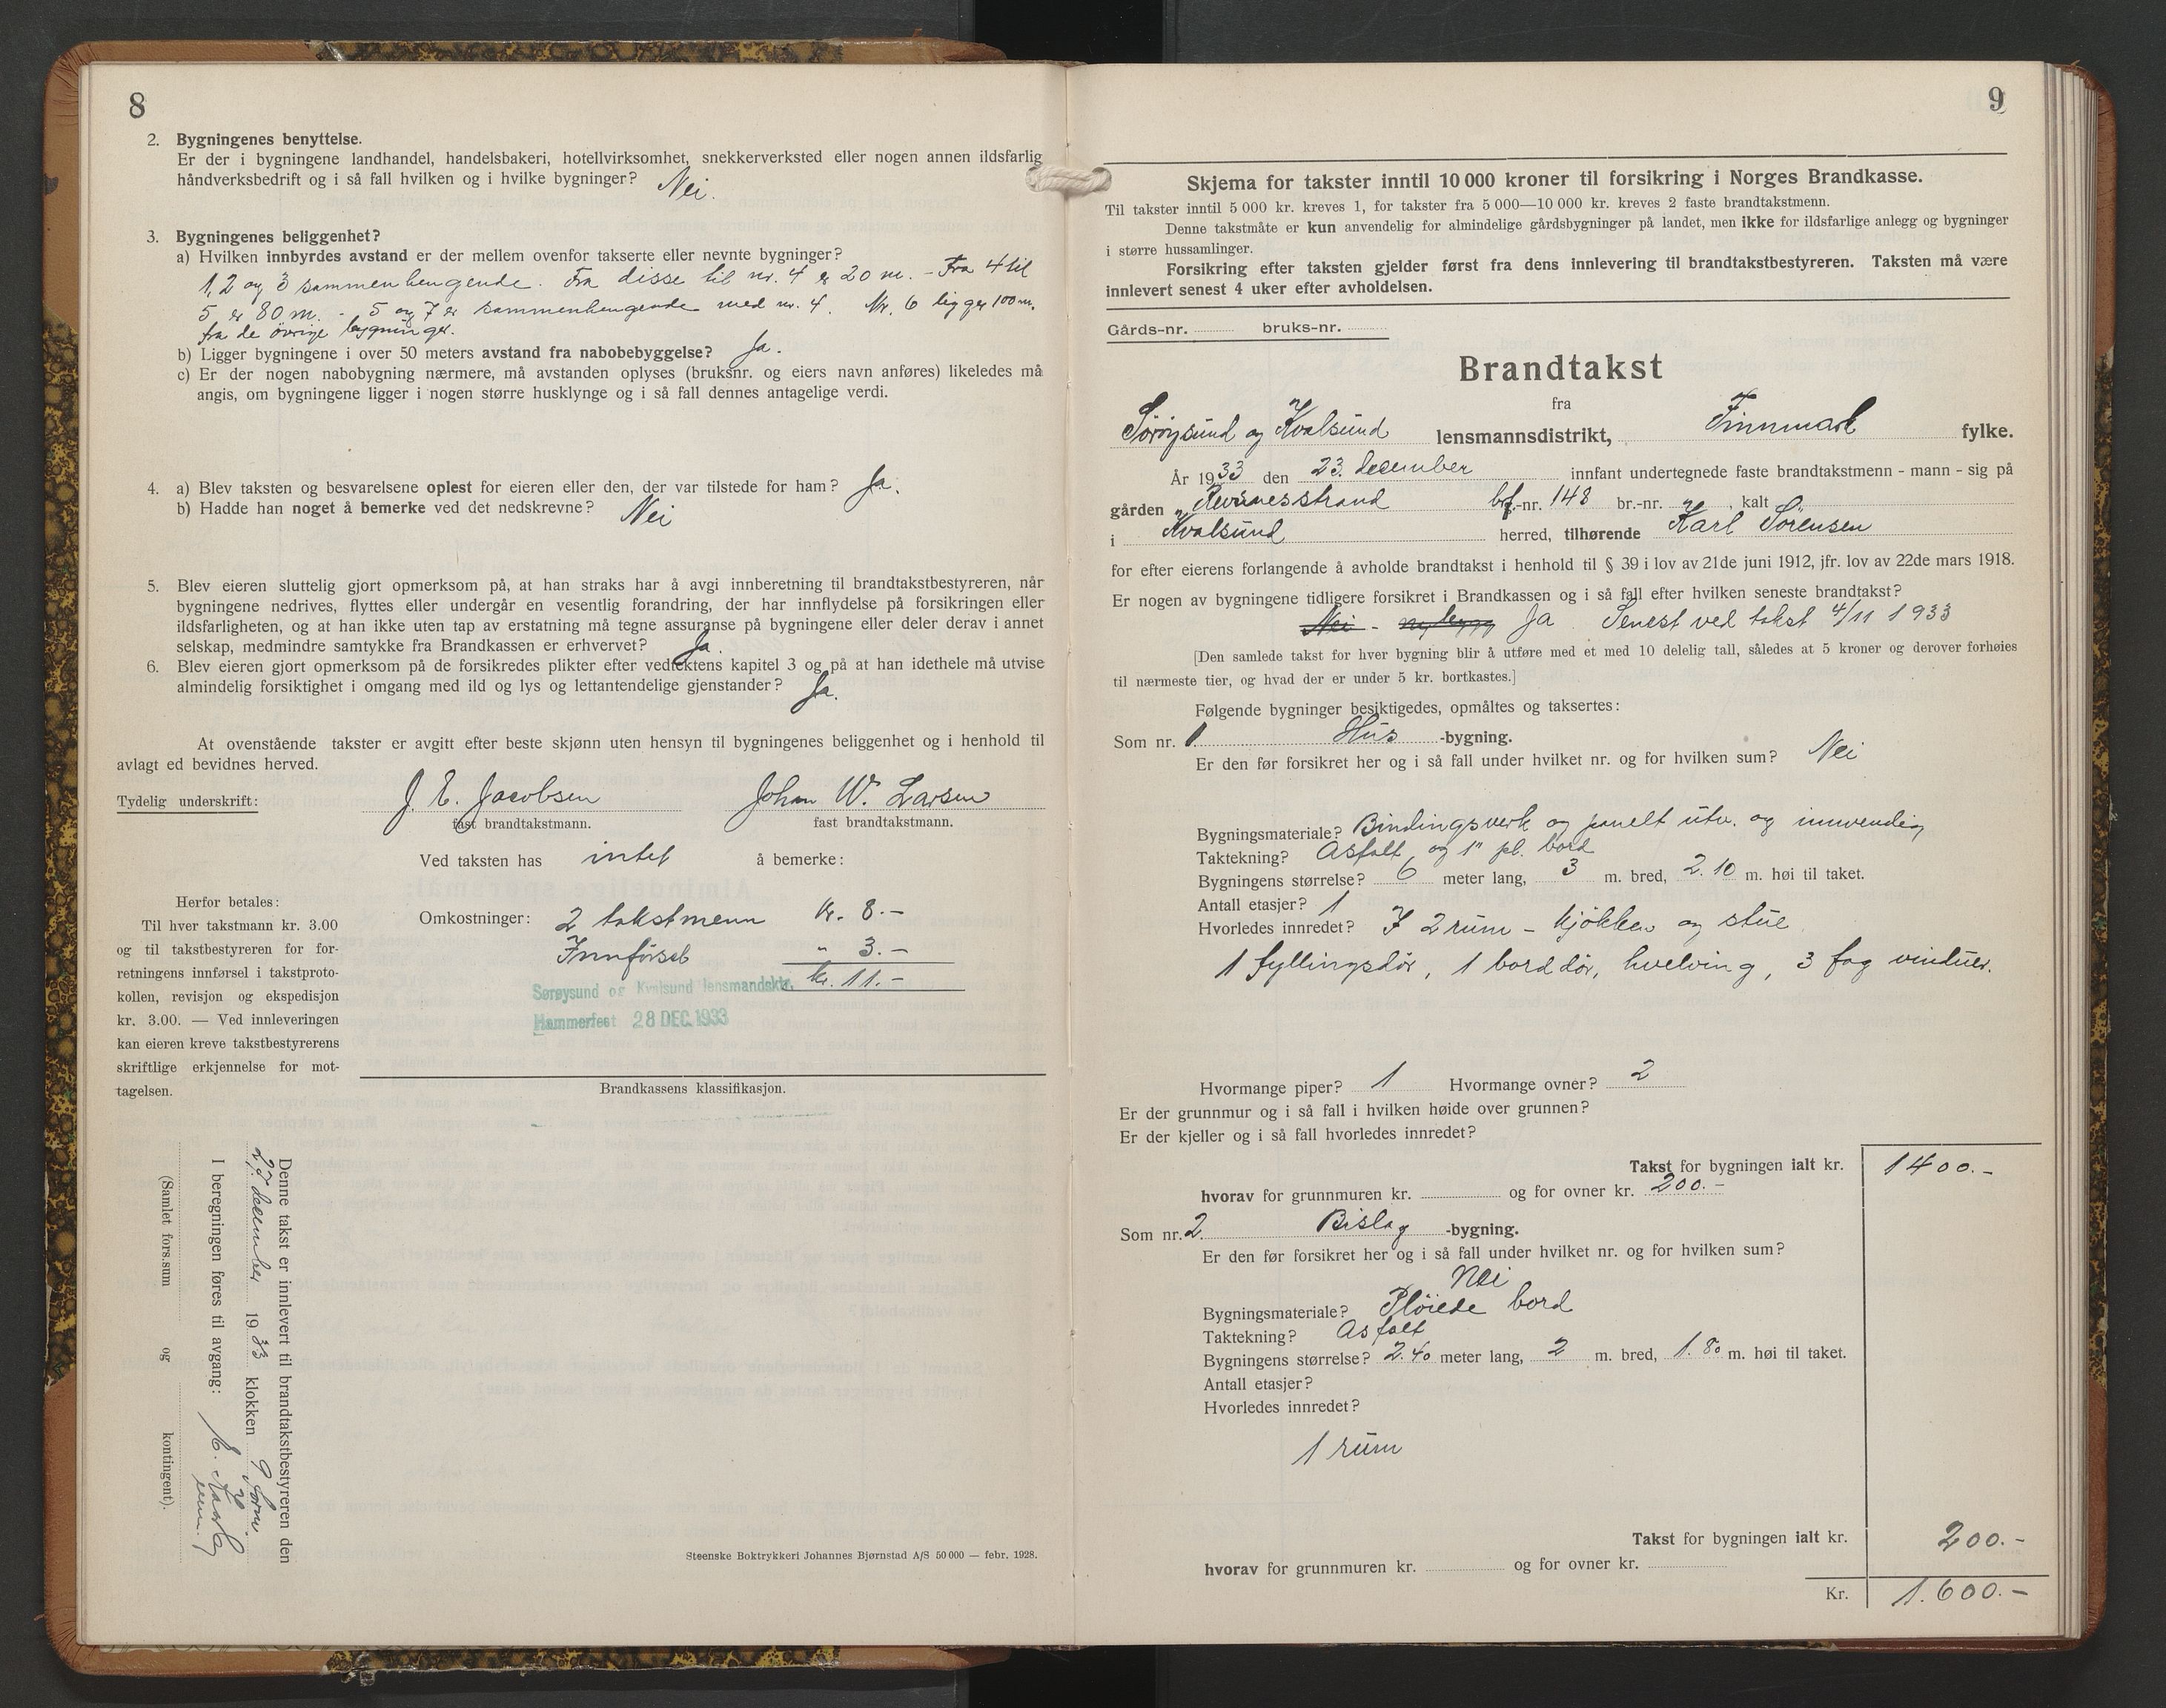 8
2. Bygningenes benyttelse.
Er der i bygningene landhandel, handelsbakeri, hotellvirksomhet, snekkerverksted eller nogen annen ildsfarlig
håndverksbedrift og i så fall hvilken og i hvilke bygninger? Nei.
3. Bygningenes beliggenhet?
a) Hvilken innbyrdes avstand er der mellem ovenfor takserte eller nevnte bygninger?
1, 2 og 3 sammenhengende. Fra disse til nr. 4 er 20 m. - Fra 4 til
5 er 80 m. - 5 og 7 er sammenhengende med nr. 4. Nr. 6 ligger 100 m.
fra de övrige bygninger.
b) Ligger bygningene i over 50 meters avstand fra nabobebyggelse? Ja.
c) Er der nogen nabobygning nærmere, må avstanden oplyses (bruksnr. og eiers navn anføres) likeledes må
angis, om bygningene ligger i nogen større husklynge og i så fall dennes antagelige verdi.
4. a) Blev taksten og besvarelsene oplest for eieren eller den, der var tilstede for ham? Ja.
b) Hadde han noget å bemerke ved det nedskrevne? Nei
5. Blev eieren sluttelig gjort opmerksom på, at han straks har å avgi innberetning til brandtakstbestyreren, når
bygningene nedrives, flyttes eller undergår en vesentlig forandring, der har innflydelse på forsikringen eller
ildsfarligheten, og at han ikke uten tap av erstatning må tegne assuranse på bygningene eller deler derav i annet
selskap, medmindre samtykke fra Brandkassen er erhvervet? Ja.
6. Blev eieren gjort opmerksom på de forsikredes plikter efter vedtektens kapitel 3 og på at han idethele må utvise
almindelig forsiktighet i omgang med ild og lys og lettantendelige gjenstander? Ja.
At ovenstående takster er avgitt efter beste skjønn uten hensyn til bygningenes beliggenhet og i henhold til
avlagt ed bevidnes herved.
Tydelig underskrift: J. E. Jacobsen Johan W. Larsen
fast brandtakstmann. fast brandtakstmann.
Ved taksten has intet å bemerke:
Herfor betales:
Til hver takstmann kr. 3.00
og til takstbestyreren for for-
retningens innførsel i takstproto-
kollen, revisjon og ekspedisjon
kr. 3.00. — Ved innleveringen
kan eieren kreve takstbestyrerens
skriftlige erkjennelse for mot-
tagelsen.
Omkostninger: 2 takstmenn kr. 8.-
Innförsel " 3.-
kr. 11.-
Sørøysund og Kvalsund lensmandsktr.
Hammerfest 28 DEC. 1933
Brandkassens klassifikasjon.
Denne takst er innlevert til brandtakstbestyreren den
27 december 1933 klokken 9 form.
I beregningen føres til avgang:
(Samlet fors.sum og kontingent).
Steenske Boktrykkeri Johannes Bjørnstad A/S 50 000 — febr. 1928.
9
Skjema for takster inntil 10 000 kroner til forsikring i Norges Brandkasse.
Til takster inntil 5 000 kr. kreves 1, for takster fra 5 000—10 000 kr. kreves 2 faste brandtakstmenn.
Denne takstmåte er kun anvendelig for almindelige gårdsbygninger på landet, men ikke for ildsfarlige anlegg og bygninger
i større hussamlinger.
Forsikring efter taksten gjelder først fra dens innlevering til brandtakstbestyreren. Taksten må være
innlevert senest 4 uker efter avholdelsen.
Gårds-nr. bruks-nr.
Brandtakst
fra
Sörøysund og Kvalsund lensmannsdistrikt, Finnmark fylke.
År 1933 den 23. december innfant undertegnede faste brandtakstmenn - mann - sig på
gården „Revsnesstrand bf.-nr. 148 br.-nr. , kalt
i Kvalsund herred, tilhørende Karl Sörensen
for efter eierens forlangende å avholde brandtakst i henhold til § 39 i lov av 21de juni 1912, jfr. lov av 22de mars 1918.
Er nogen av bygningene tidligere forsikret i Brandkassen og i så fall efter hvilken seneste brandtakst?
Nei - nybygg Ja. Senest ved takst 4/11 1933
[Den samlede takst for hver bygning blir å utføre med et med 10 delelig tall, således at 5 kroner og derover forhøies
til nærmeste tier, og hvad der er under 5 kr. bortkastes.]
Følgende bygninger besiktigedes, opmåltes og taksertes:
Som nr. 1 Hus -bygning.
Er den før forsikret her og i så fall under hvilket nr. og for hvilken sum? Nei
Bygningsmateriale? Bindingsverk og panelt utv. og innvendig
Taktekning? Asfalt og 1" pl. bord
Bygningens størrelse? 6 meter lang, 3 m. bred, 2.10 m. høi til taket.
Antall etasjer? 1
Hvorledes innredet? I 2 rum - kjökken og stue
1 fyllingsdör, 1 borddör, hvelving, 3 fag vinduer.
Hvormange piper? 1 Hvormange ovner? 2
Er der grunnmur og i så fall i hvilken høide over grunnen?
Er der kjeller og i så fall hvorledes innredet?
Takst for bygningen ialt kr. 1400.-
hvorav for grunnmuren kr. og for ovner kr. 200.-
Som nr. 2 Bislag -bygning.
Er den før forsikret her og i så fall under hvilket nr. og for hvilken sum?
Nei
Bygningsmateriale? Plöiede bord
Taktekning? Asfalt
Bygningens størrelse? 2.40 meter lang, 2 m. bred, 1.80 m. høi til taket.
Antall etasjer?
Hvorledes innredet?
1 rum
Takst for bygningen ialt kr. 200.-
hvorav for grunnmuren kr. og for ovner kr.
Kr. 1.600.-